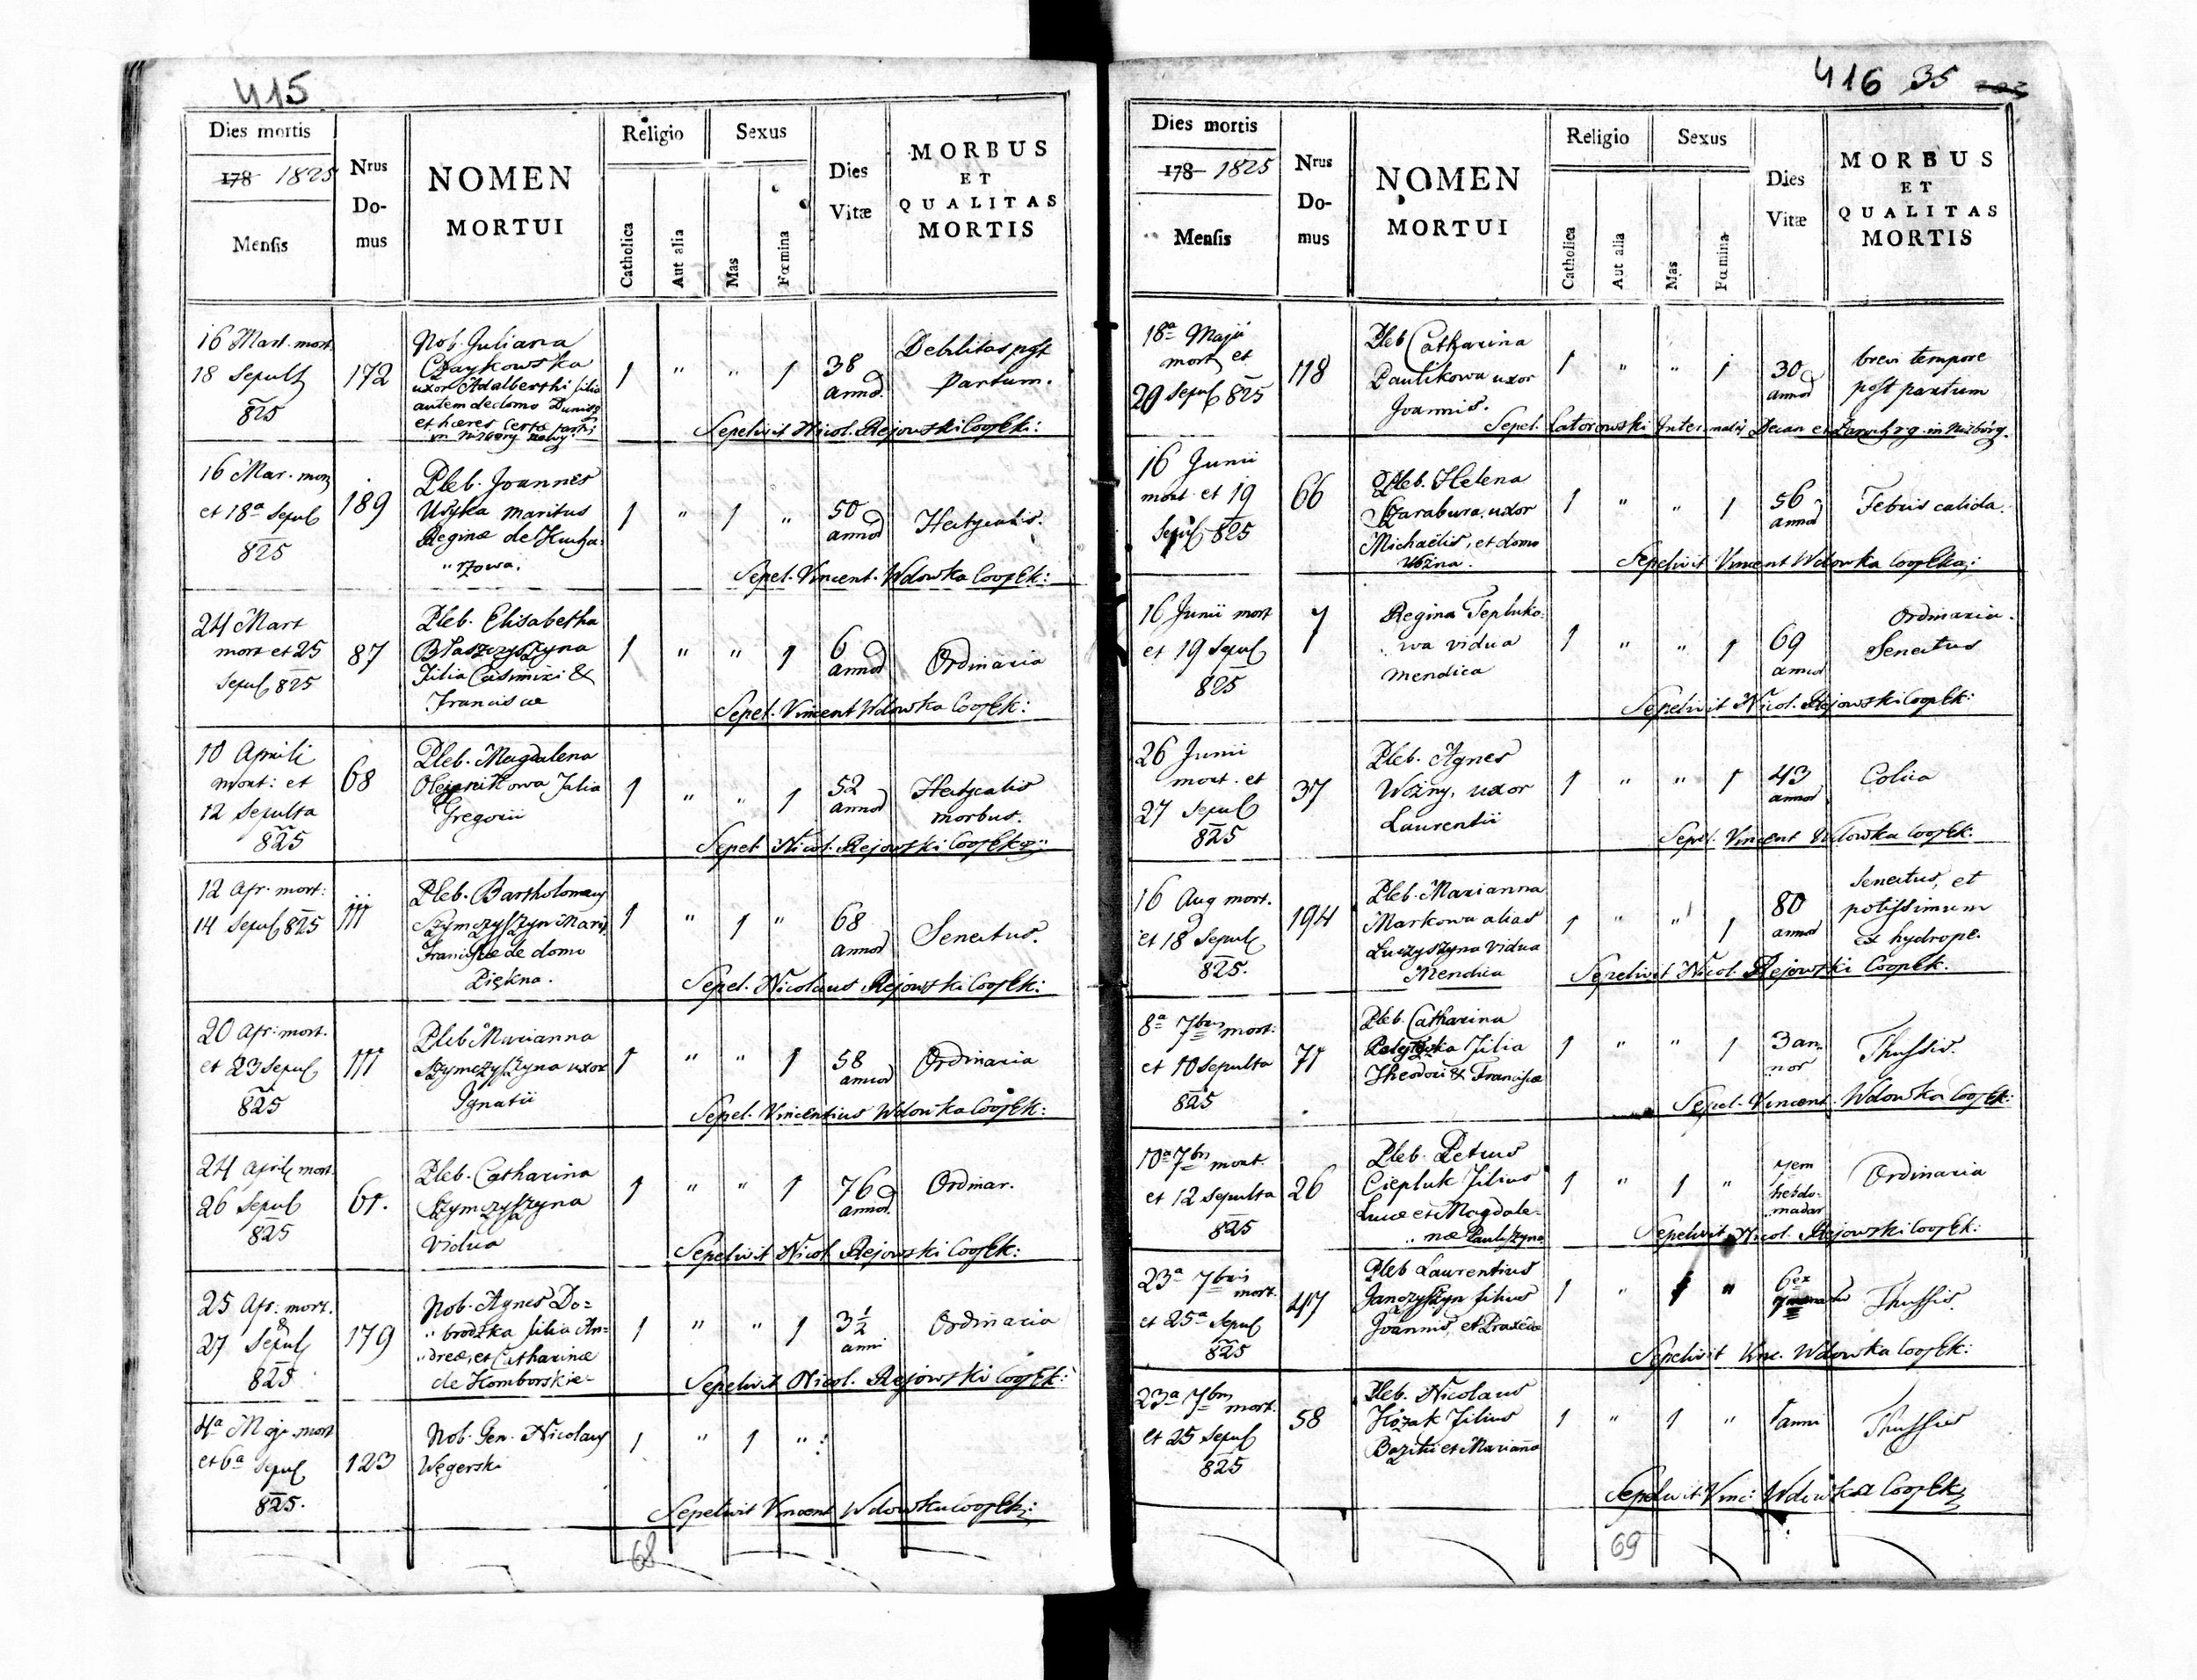 415
Dies mortis
178 1825
Mensis
Nrus
Do-
mus
NOMEN
MORTUI
Religio
Catholica
Aut alia
Sexus
Mas
Fœmina
Dies
Vitæ
MORBUS
ET
QUALITAS
MORTIS
16 Mart. mort.
18 Sepult
825
172
Nob. Juliana
Czaykowska
uxor Adalberthi filia
autem de domo Dunin
et hæres certæ partis
in Nizbory nowy
1 " " 1
38
annor
Debilitas post
partum.
Sepelivit Nicol. Rejowski CoopEk:
16 Mar. mor
et 18a Sepul
825
189
Pleb. Joannes
Usyka maritus
Reginæ de Kucha-
"rzowa.
1 " 1 "
50
annor
Hectycalis.
Sepel. Vincent. Wdowka CoopEk:
24 Mart
mort et 25
Sepul 825
87
Pleb. Elisabetha
Błaszczyszyna
Filia Casimiri &
Franciscæ
1 " " 1
6
annor
Ordinaria
Sepel. Vincent Wdowka CoopEk:
10 Aprili
mort: et
12 Sepulta
825
68
Pleb. Magdalena
Olejnikowa Filia
Gregorii
1 " " 1
52
annor
Hectycalis
morbus.
Sepel Nicol. Rejowski CoopEk:
12 Apr. mort:
14 Sepul 825
111
Pleb. Bartholomæus
Szymczyszyn Marit.
Franciscæ de domo
Piękna.
1 " 1 "
68
annor
Senectus.
Sepel. Nicolaus Rejowski CoopEk:
20 Apr: mort.
et 23 Sepul
825
111
Pleb Marianna
Szymczyszyna uxor
Ignatii
1 " " 1
58
annor
Ordinaria
Sepel. Vincentius Wdowka CoopEk:
24 April mort.
26 Sepul
825
61.
Pleb. Catharina
Szymczyszyna
Vidua
1 " " 1
76
annor.
Ordinar.
Sepelivit Nicol. Rejowski CoopEk:
25 Apr: mort.
&
27 Sepul
825
179
Nob. Agnes Do=
"brodzka filia An-
"dreæ, et Catharinæ
de Komborskie
1 " " 1
3½
anni
Ordinaria
Sepelivit Nicol. Rejowski CoopEk:
4a Maji mort
et 6a Sepul
825.
123
Nob. Gen. Nicolaus
Węgerski
1 " 1 "
Sepelivit Vincent Wdowka CoopEk:
68
416 35
Dies mortis
178 1825
Mensis
Nrus
Do-
mus
NOMEN
MORTUI
Religio
Catholica
Aut alia
Sexus
Mas
Fœmina
Dies
Vitæ
MORBUS
ET
QUALITAS
MORTIS
18a Maji
mort et
20 Sepul 825
118
Pleb Catharina
Paulikowa uxor
Joannis.
1 " " 1
30
annor
brevi tempore
post partum
Sepel. Latorowski Decan et Paroch r.g. in Nizborg.
16 Junii
mort et 19
Sepul 825
66
Pleb. Helena
Szarabura, uxor
Michaëlis, et domo
Wozna.
1 " " 1
56
annor
Febris calida.
Sepelivit Vincent Wdowka CoopEk:
16 Junii mort
et 19 Sepul
825
7
Regina Tepluko-
"wa vidua
mendica
1 " " 1
69
annor
Ordinaria.
Senectus
Sepelivit Nicol. Rejowski CoopEk:
26 Junii
mort. et
27 Sepul
825
37
Pleb. Agnes
Wozny, uxor
Laurentii
1 " " 1
43
annor
Colica
Sepel. Vincent Wdowka CoopEk:
16 Aug mort.
et 18 Sepul
825.
194
Pleb. Marianna
Markowa alias
Luczyszyna Vidua
Mendica
1 " " 1
80
annor
Senectus, et
potissimum
ex hydrope.
Sepelivit Nicol. Rejowski CoopEk.
8a 7bris mort:
et 10 Sepulta
825
71
Pleb. Catharina
Filia
Theodori & Franciscæ
1 " " 1
3 an
nor
Thussis.
Sepel. Vincent. Wdowka CoopEk:
10a 7bris mort.
et 12 Sepulta
825
26
Pleb. Petrus
Ciepluk Filius
Lucæ et Magdale-
"næ Pauliszyna
1 " 1 "
7em
hebdo-
madar
Ordinaria
Sepelivit Nicol. Rejowski CoopEk:
23a 7bris
mort.
et 25a Sepul
825
47
Pleb Laurentius
Janczyszyn filius
Joannis, et Praxedæ
1 " 1 "
6ex
Thussis.
Sepelivit Vinc. Wdowka CoopEk:
23a 7bris mort.
et 25 Sepul
825
58
Pleb. Nicolaus
Kózak Filius
Bazilii et Marianna
1 " 1 "
1 anni
Thussis
Sepelivit Vinc: Wdowka CoopEk
69